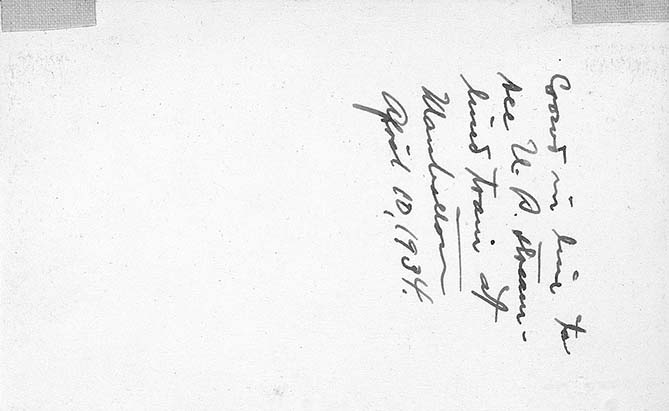 Crowd in line to
see U. P. stream-
lined train at
Manhattan
April 10, 1934.